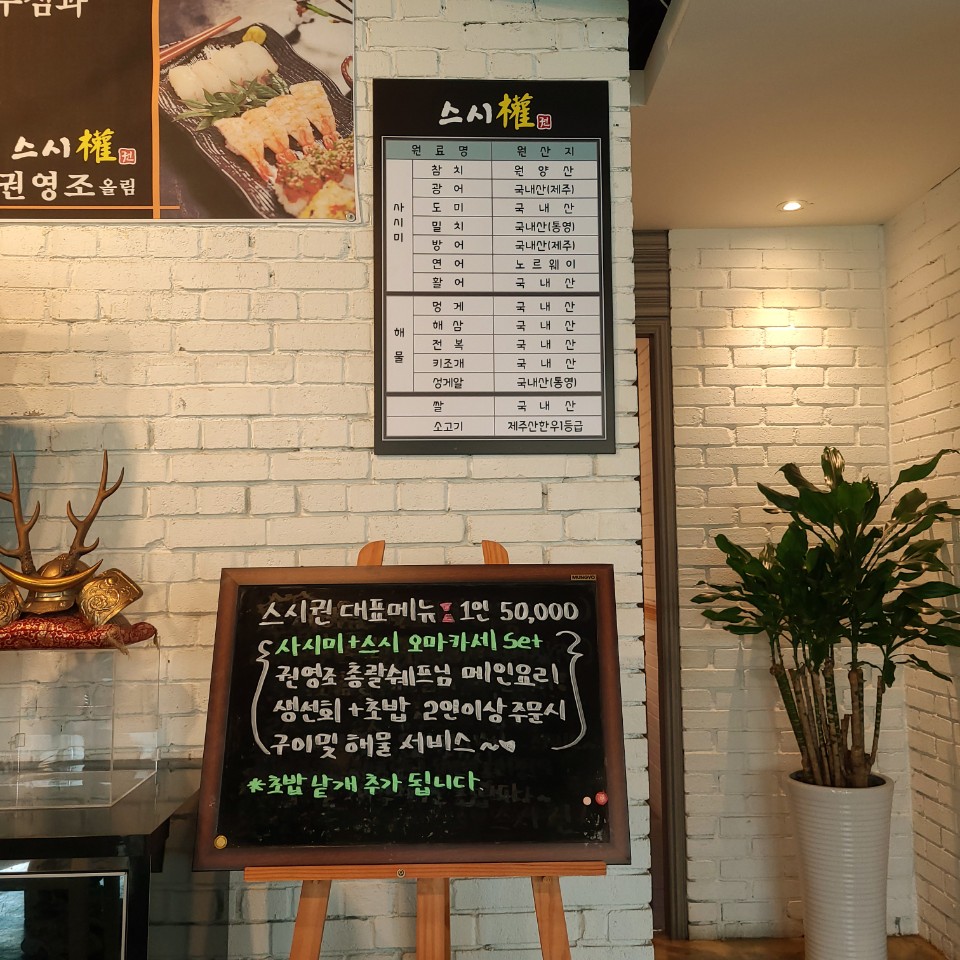 스시權 권
권영조올림
스시權 권
원료명 원산지
사시미
참치 원양산
광어 국내산(제주)
도미 국내산
밀치 국내산(통영)
방어 국내산(제주)
연어 노르웨이
활어 국내산
해물
멍게 국내산
해삼 국내산
전복 국내산
키조개 국내산
성게알 국내산(통영)
쌀 국내산
소고기 제주산한우1등급
MUNGYO
스시권 대표메뉴 1인 50,000
사시미+스시 오마카세 Set
권영조 총괄쉐프님 메인요리
생선회+초밥 2인이상 주문시
구이및 해물 서비스~♥
*초밥 낱개 추가 됩니다.